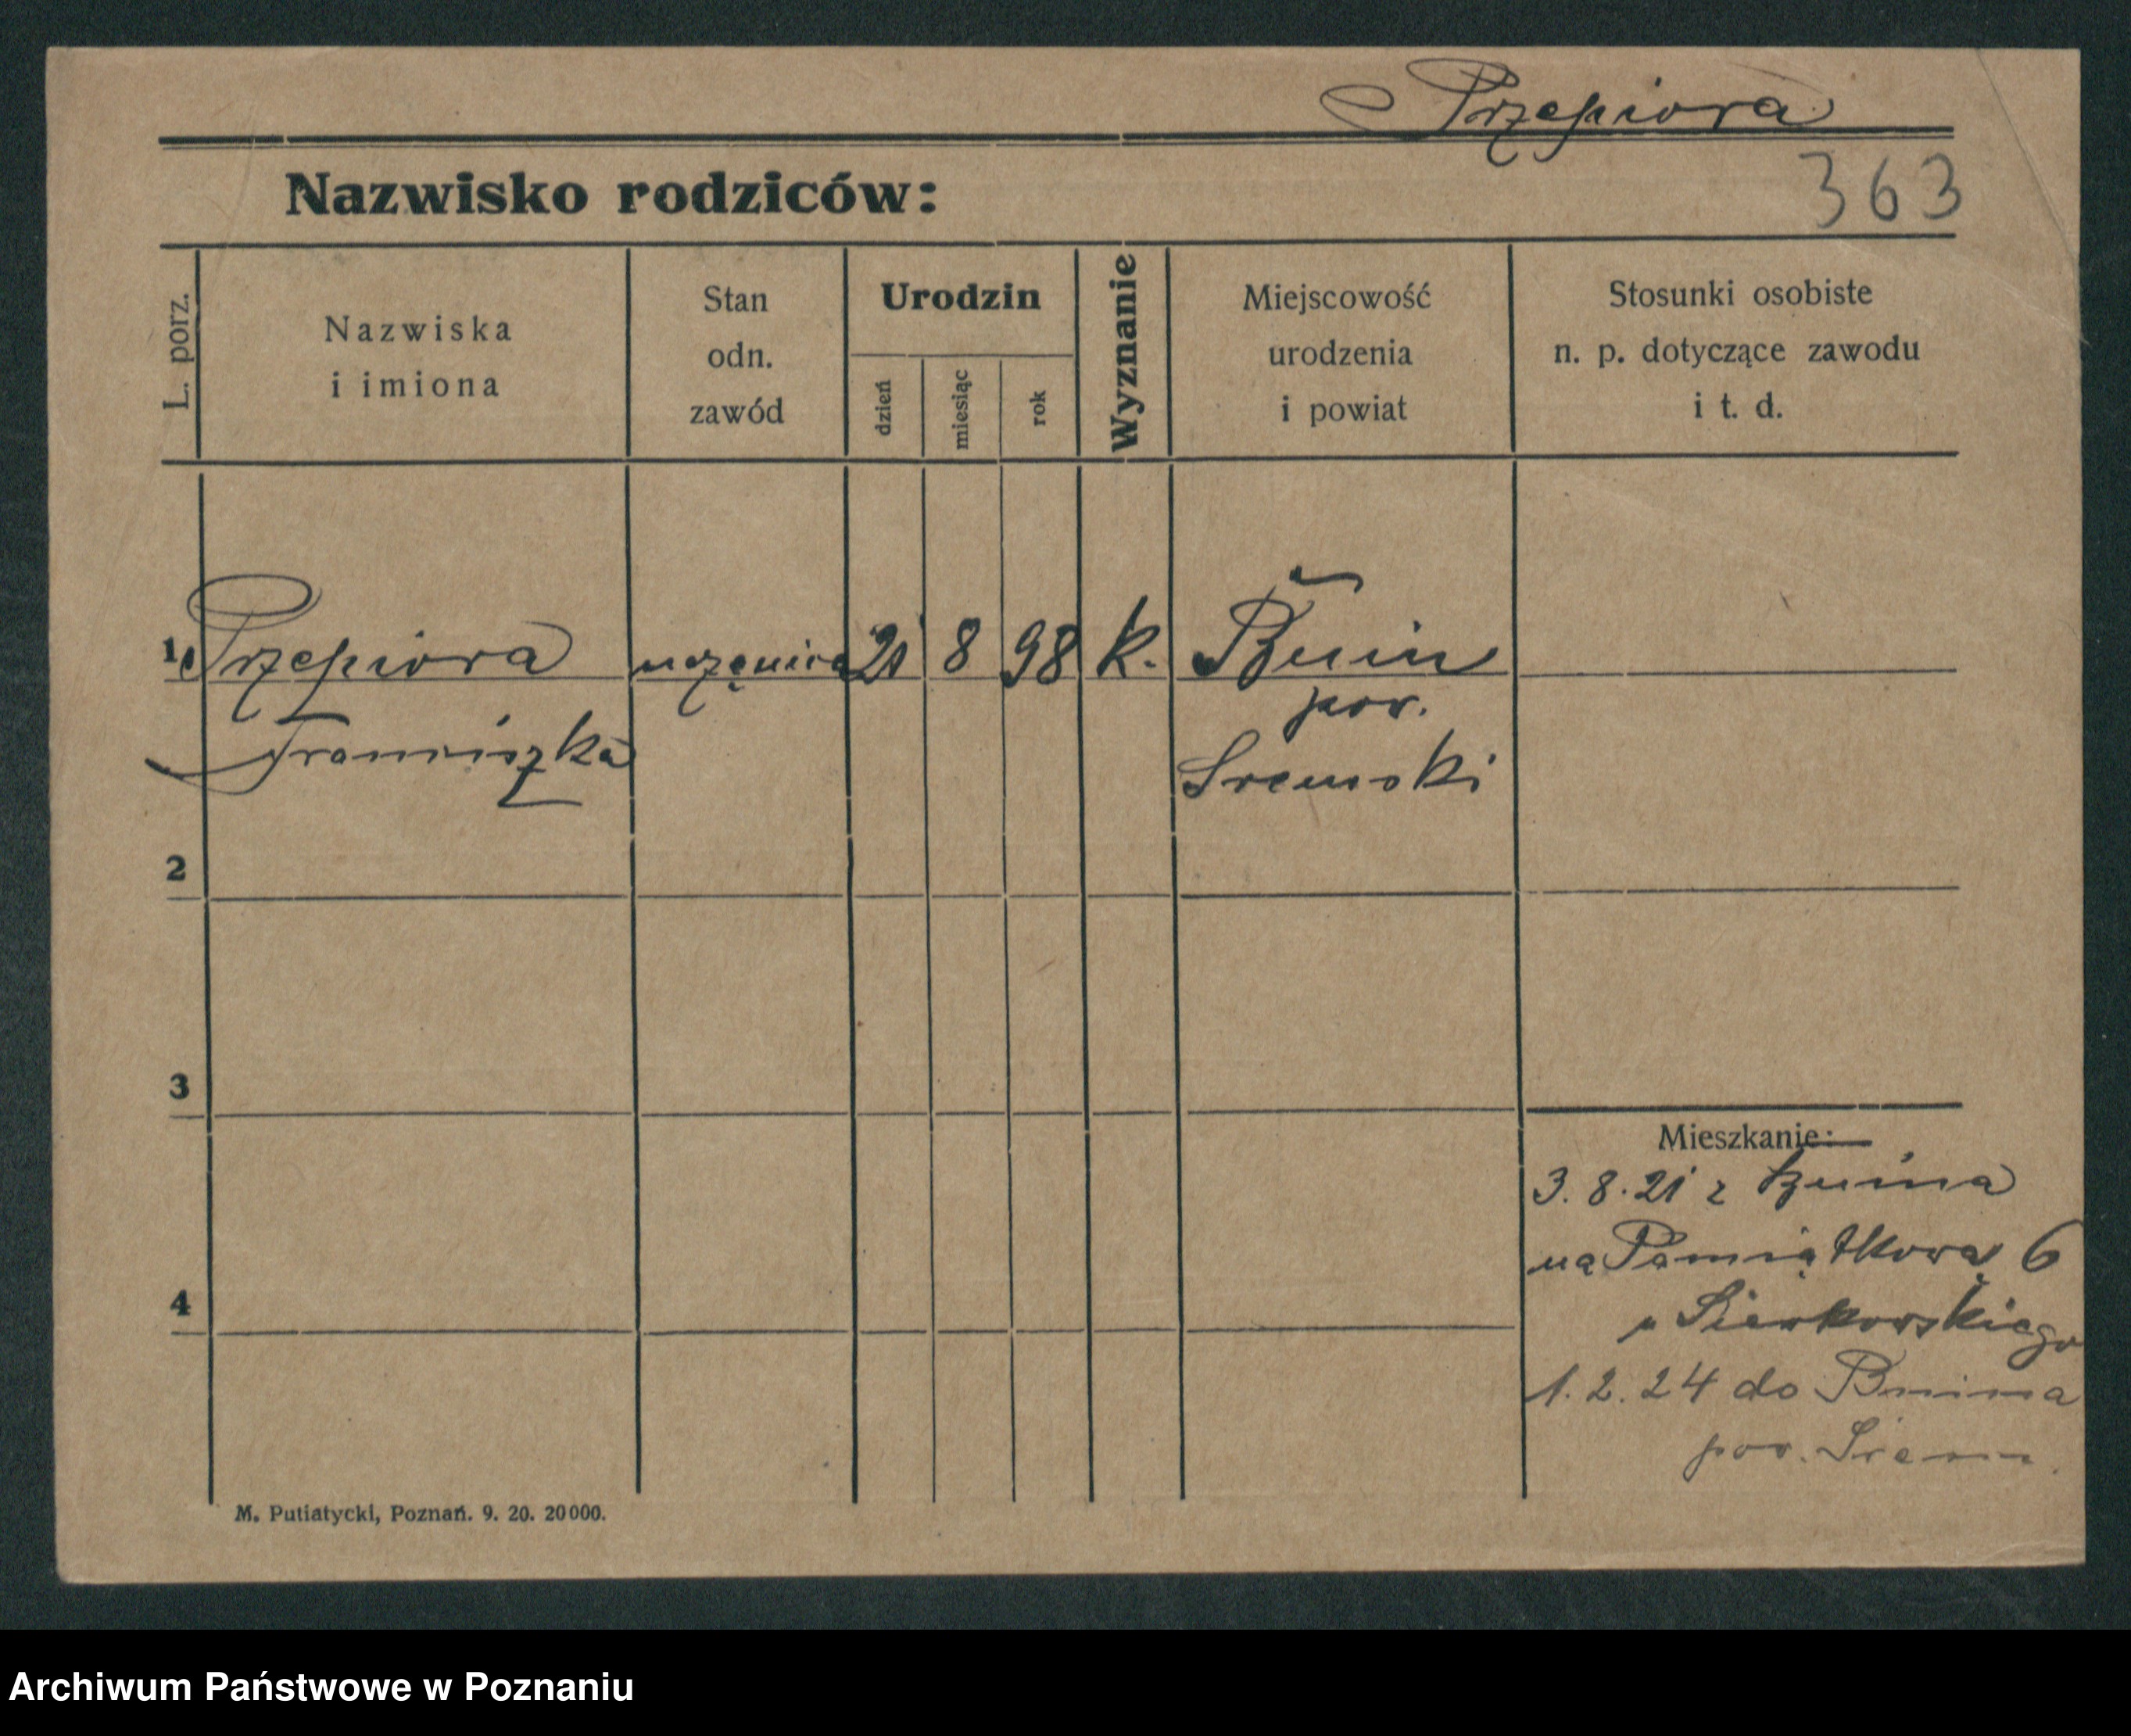 Przepiora
Nazwisko rodziców:
363
L. porz.
Nazwiska
i imiona
Stan
odn.
zawód
Urodzin
dzień
miesiąc
rok
Wyznanie
Miejscowość
urodzenia
i powiat
Stosunki osobiste
n. p. dotyczące zawodu
i t. d.
1 Przepiora uczęnica 21 8 98 k. Bnin
pow.
Franciszka Sremski
2
3
Mieszkanie:
3. 8. 21 z Bnina
na Pamiątkową 6
u
4
1. 2. 24 do Bnina
pow. Srem.
M. Putiatycki, Poznań. 9. 20. 20000.
Archiwum Państwowe w Poznaniu